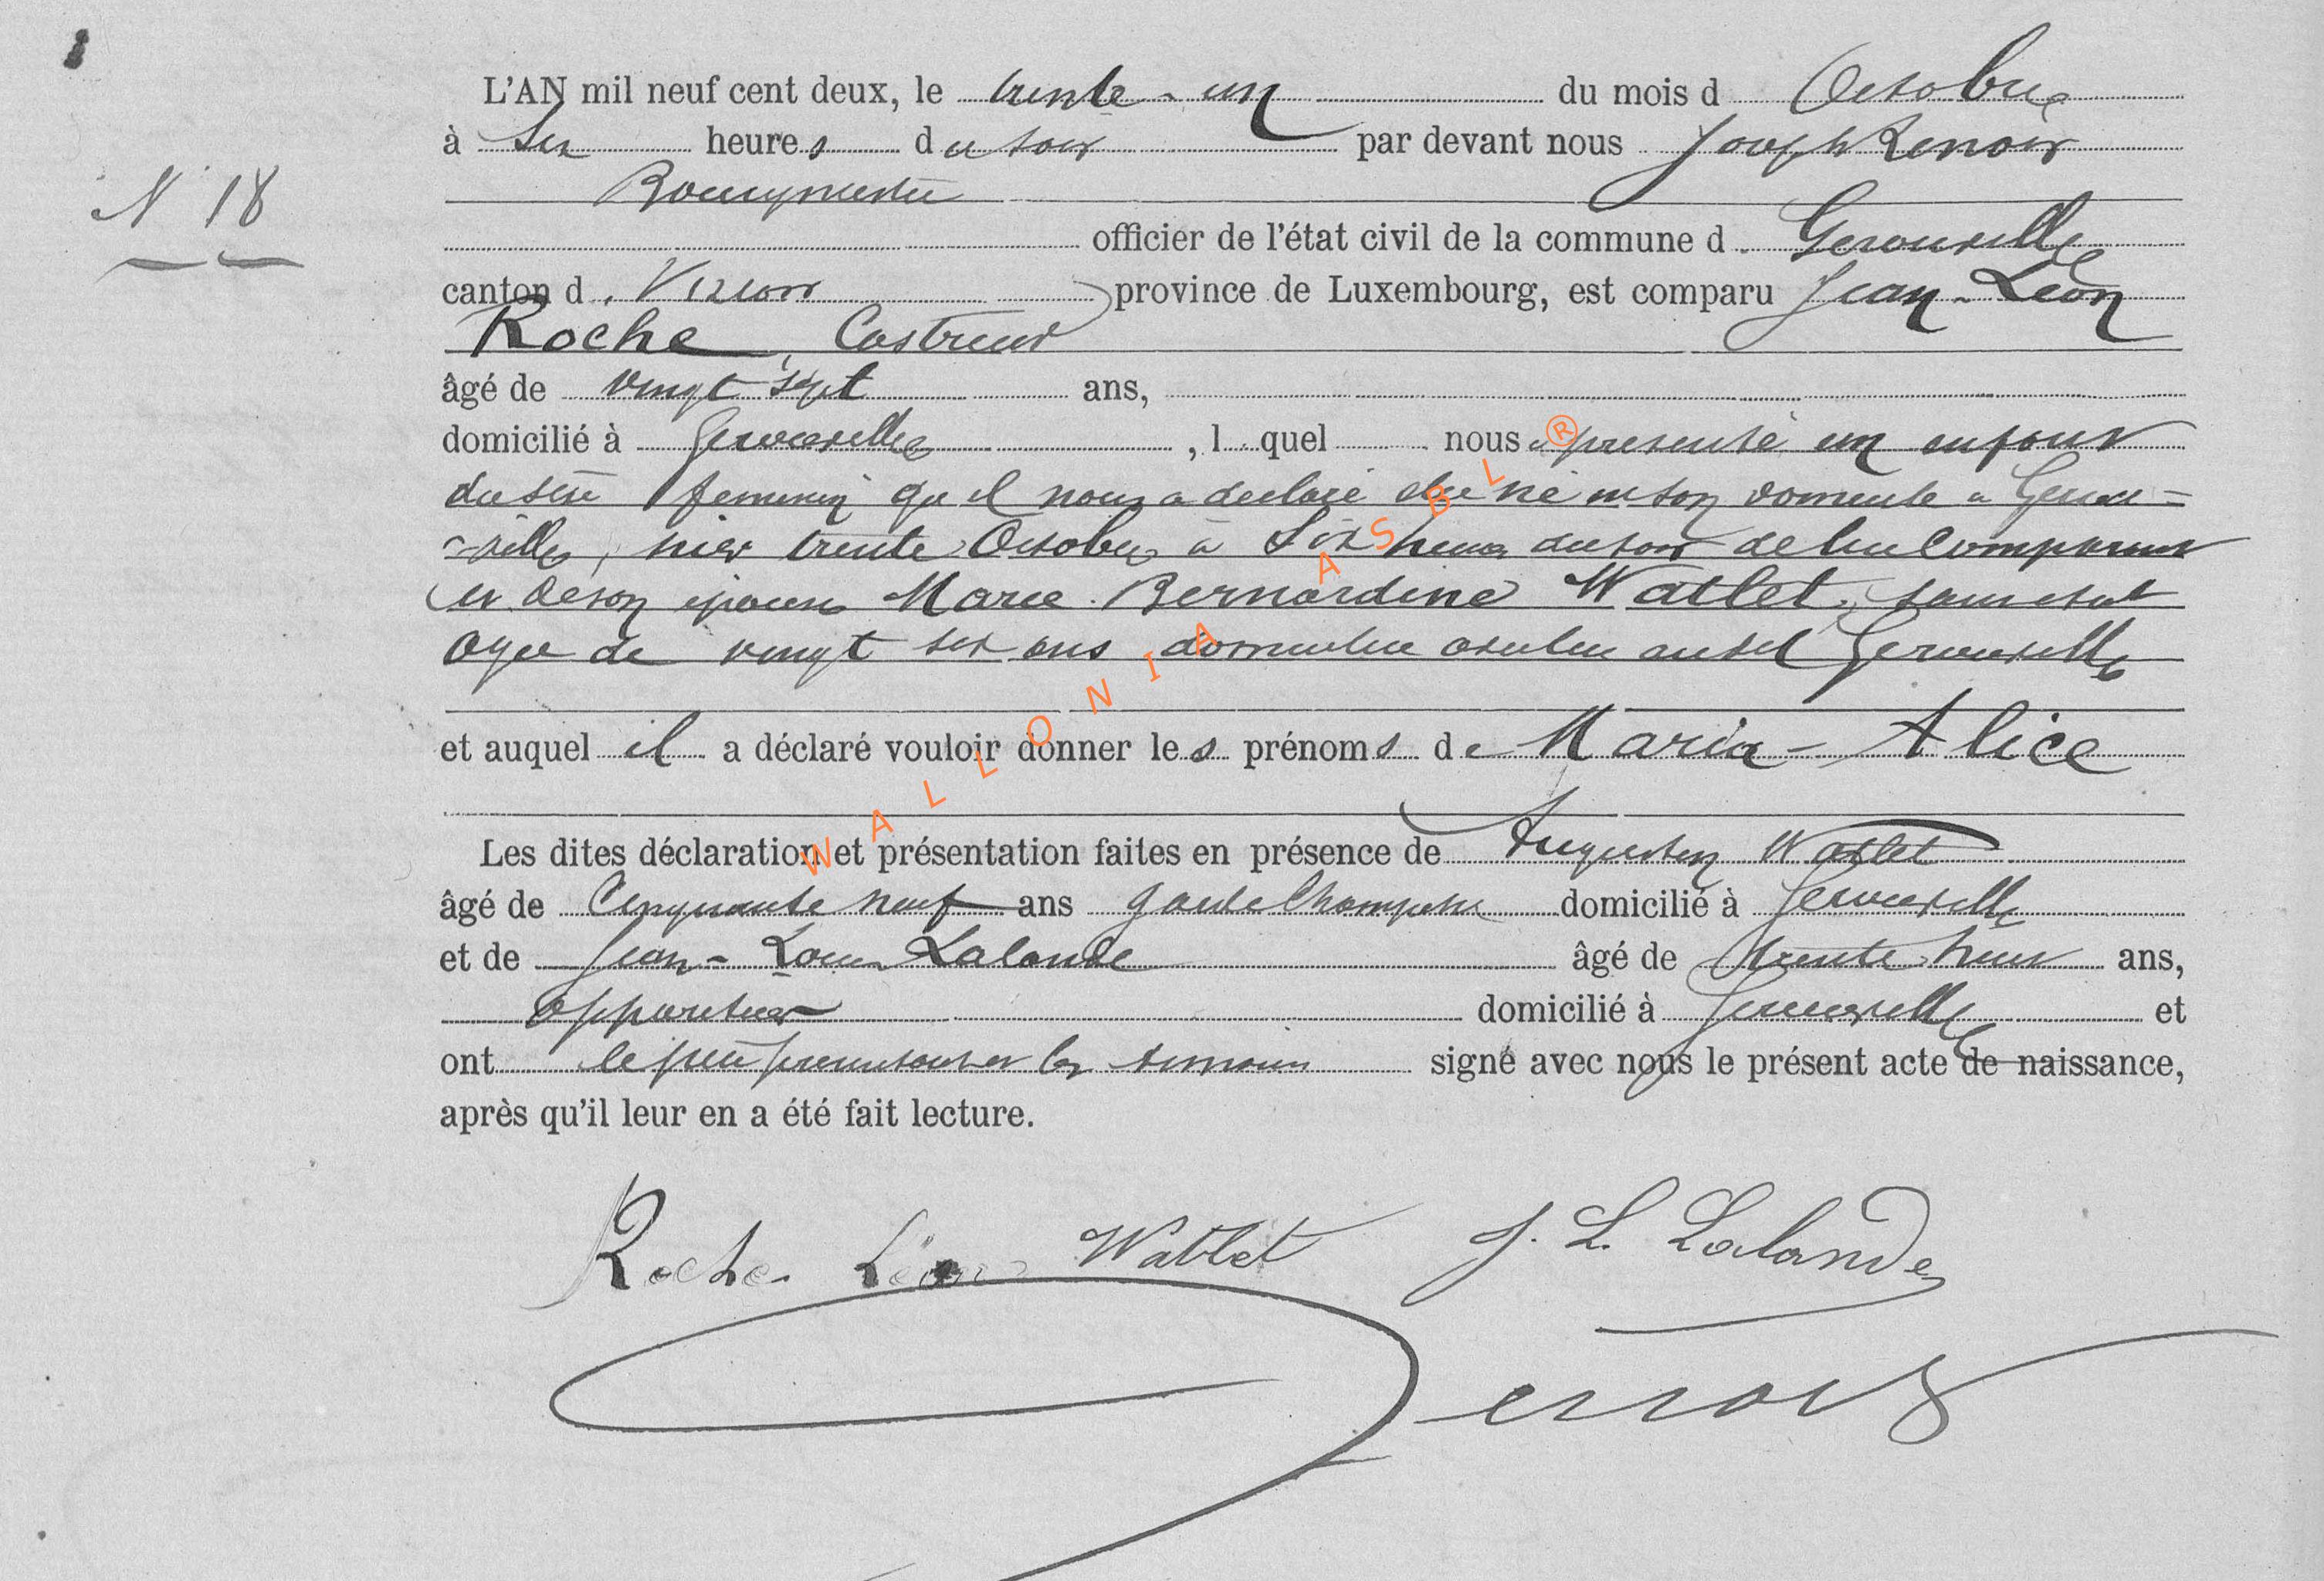 L'AN mil neuf cent deux, le trente-un du mois d Octobre
à six heures du soir par devant nous Joseph Renoir
N 18
Bourgmestre
officier de l'état civil de la commune d Gerouville
canton d Virton province de Luxembourg, est comparu Jean-Léon
Roche, Castreur
âgé de vingt sept ans,
domicilié à Gerouville, l quel nous a présenté un enfant
du sexe feminin qu il nous a déclaré être né en son domicile a Gerou=
=ville, hier trente Octobre à six heures du soir de lui Comparant
et de son epouse Marie Bernardine Watlet, sans etat
agee de vingt six ans domiciliee avec lui audit Gerouville
et auquel il a déclaré vouloir donner les prénoms de Maria-Alice
Les dites déclaration et présentation faites en présence de Augustin Watlet
âgé de Cinquante neuf ans garde Champetre domicilié à Gerouville
et de Jean-Louis Lalande âgé de trente huit ans,
appariteur domicilié à Gerouville et
ont le père et les temoins signé avec nous le présent acte de naissance,
après qu'il leur en a été fait lecture.
Roche Léon Watlet J. L. Lalande
Renoir
WALLONIA ASBL ®